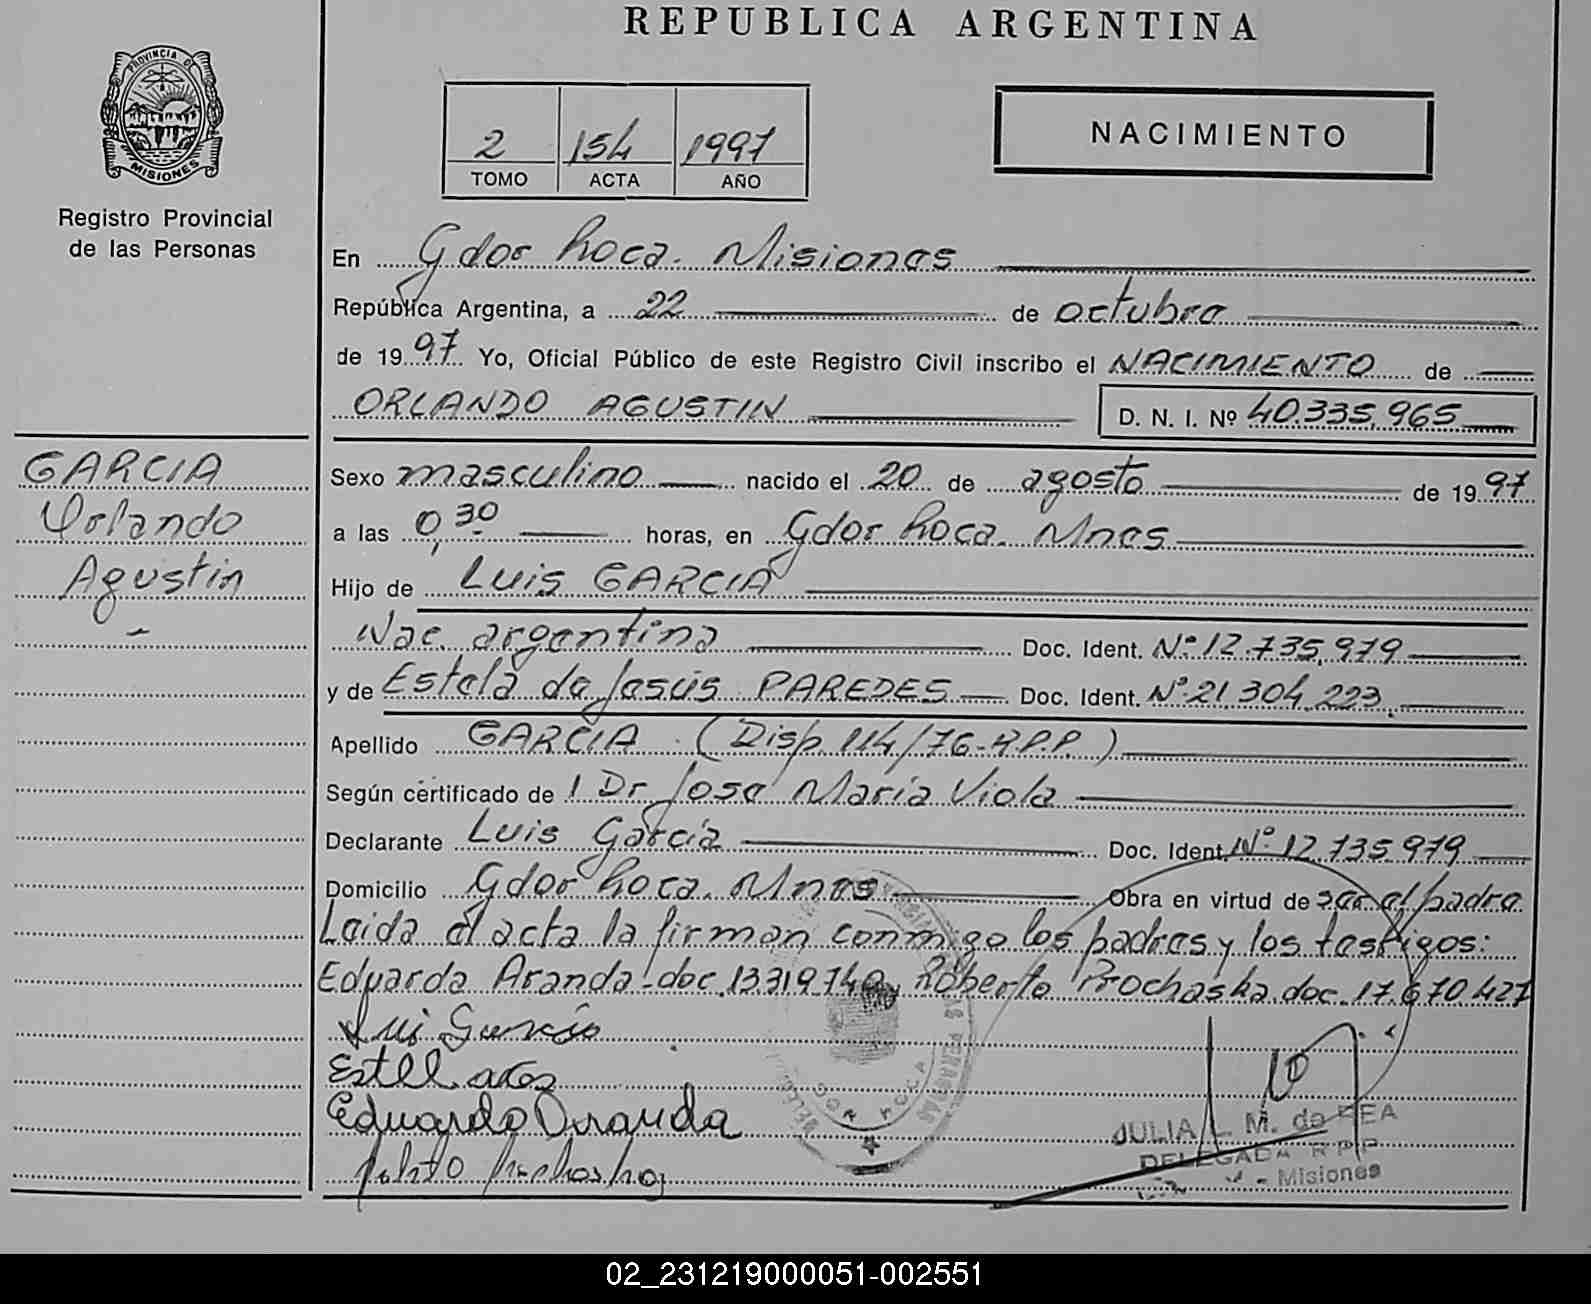 REPUBLICA ARGENTINA
PROVINCIA DE
MISIONES
Registro Provincial
de las Personas
2 154 1997
TOMO ACTA AÑO
NACIMIENTO
En Gdor Roca. Misiones
República Argentina, a 22 de octubre
de 1997 Yo, Oficial Público de este Registro Civil inscribo el NACIMIENTO de
ORLANDO AGUSTIN D. N. I. Nº 40.335.965
GARCIA
Orlando
Agustin
Sexo masculino nacido el 20 de agosto de 1997
a las 0,30 horas, en Gdor Roca. Mnes
Hijo de Luis GARCIA
Nac. argentina Doc. Ident. Nº 12.735.979
y de Estela de Jesús PAREDES Doc. Ident. Nº 21.304.223.
Apellido GARCIA (Disp. 114/76-R.P.P.)
Según certificado de 1 Dr Jose Maria Viola
Declarante Luis García Doc. Ident. Nº 12.735.979
Domicilio Gdor Roca. Mnes Obra en virtud de ser el padre.
Leida el acta la firman conmigo los padres y los testigos:
Eduardo Aranda-doc.13319.740, Roberto Prochaska.doc.17.670.427
Luis García
Eduardo Aranda
JULIA L. M. de REA
DELEGADA R P P
Misiones
02_231219000051-002551